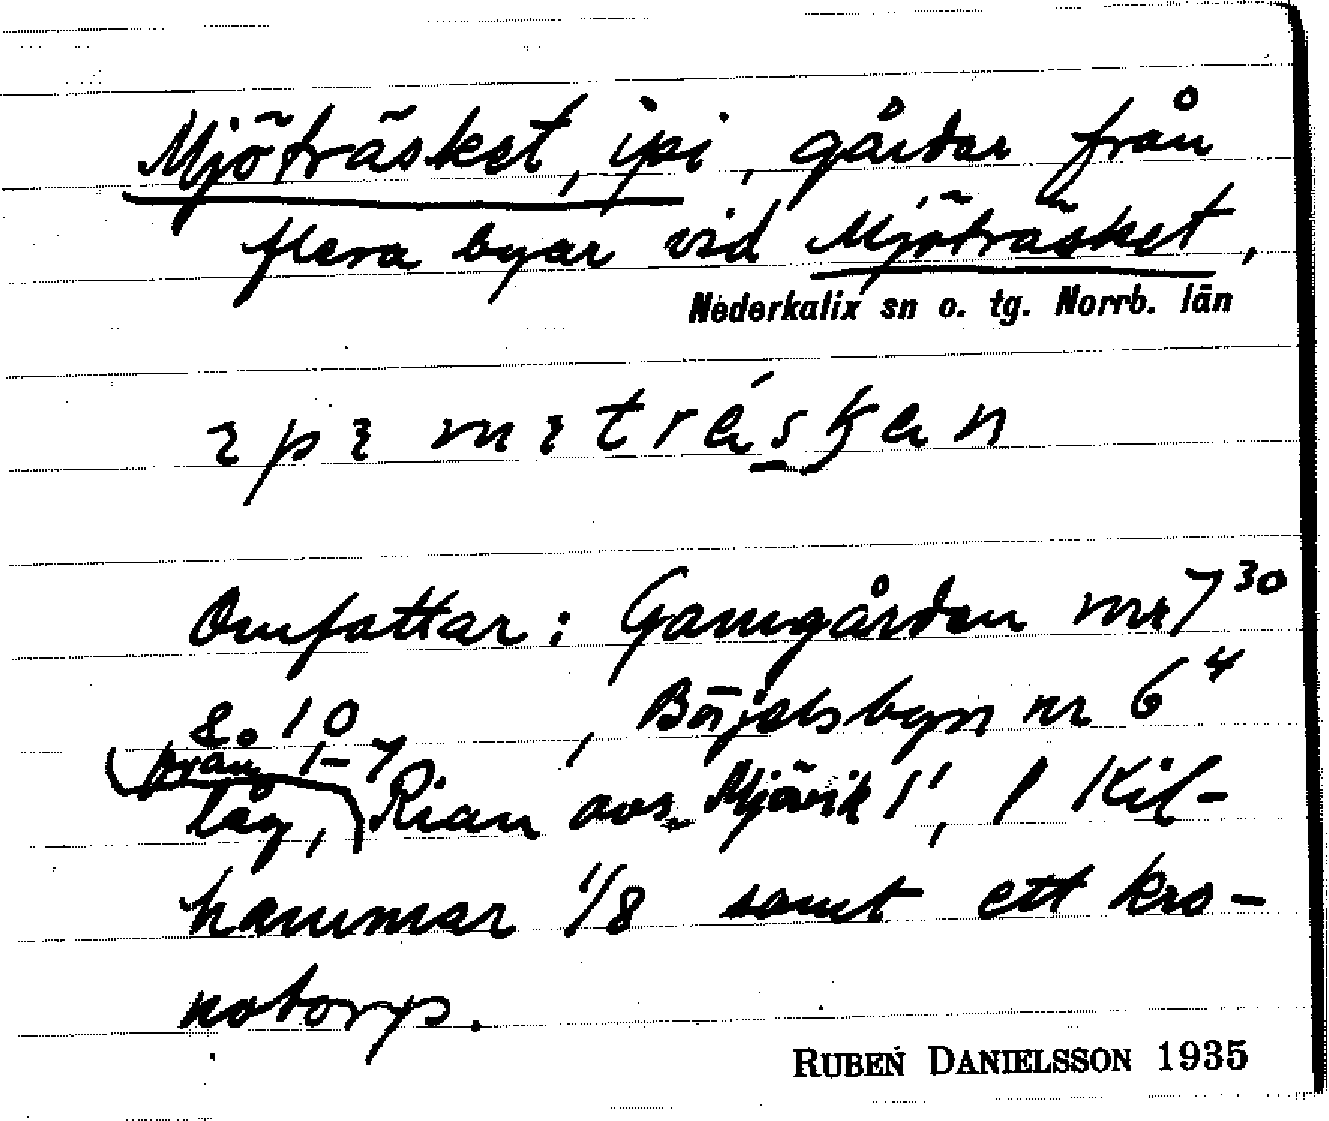 Mjöträsket, ipi, gårdar från
flera byar vid Mjöträsket,
Nederkalix sn o. tg. Norrb. län
Omfattar: Gamgården nr 7³⁰
& 10, Börjelsbyn nr 6⁴
från 1-7
låg, Rian avs. Mjövik 1¹, 1 Kil-
hammar 1/8 samt ett kro-
notorp.
RUBEN DANIELSSON 1935